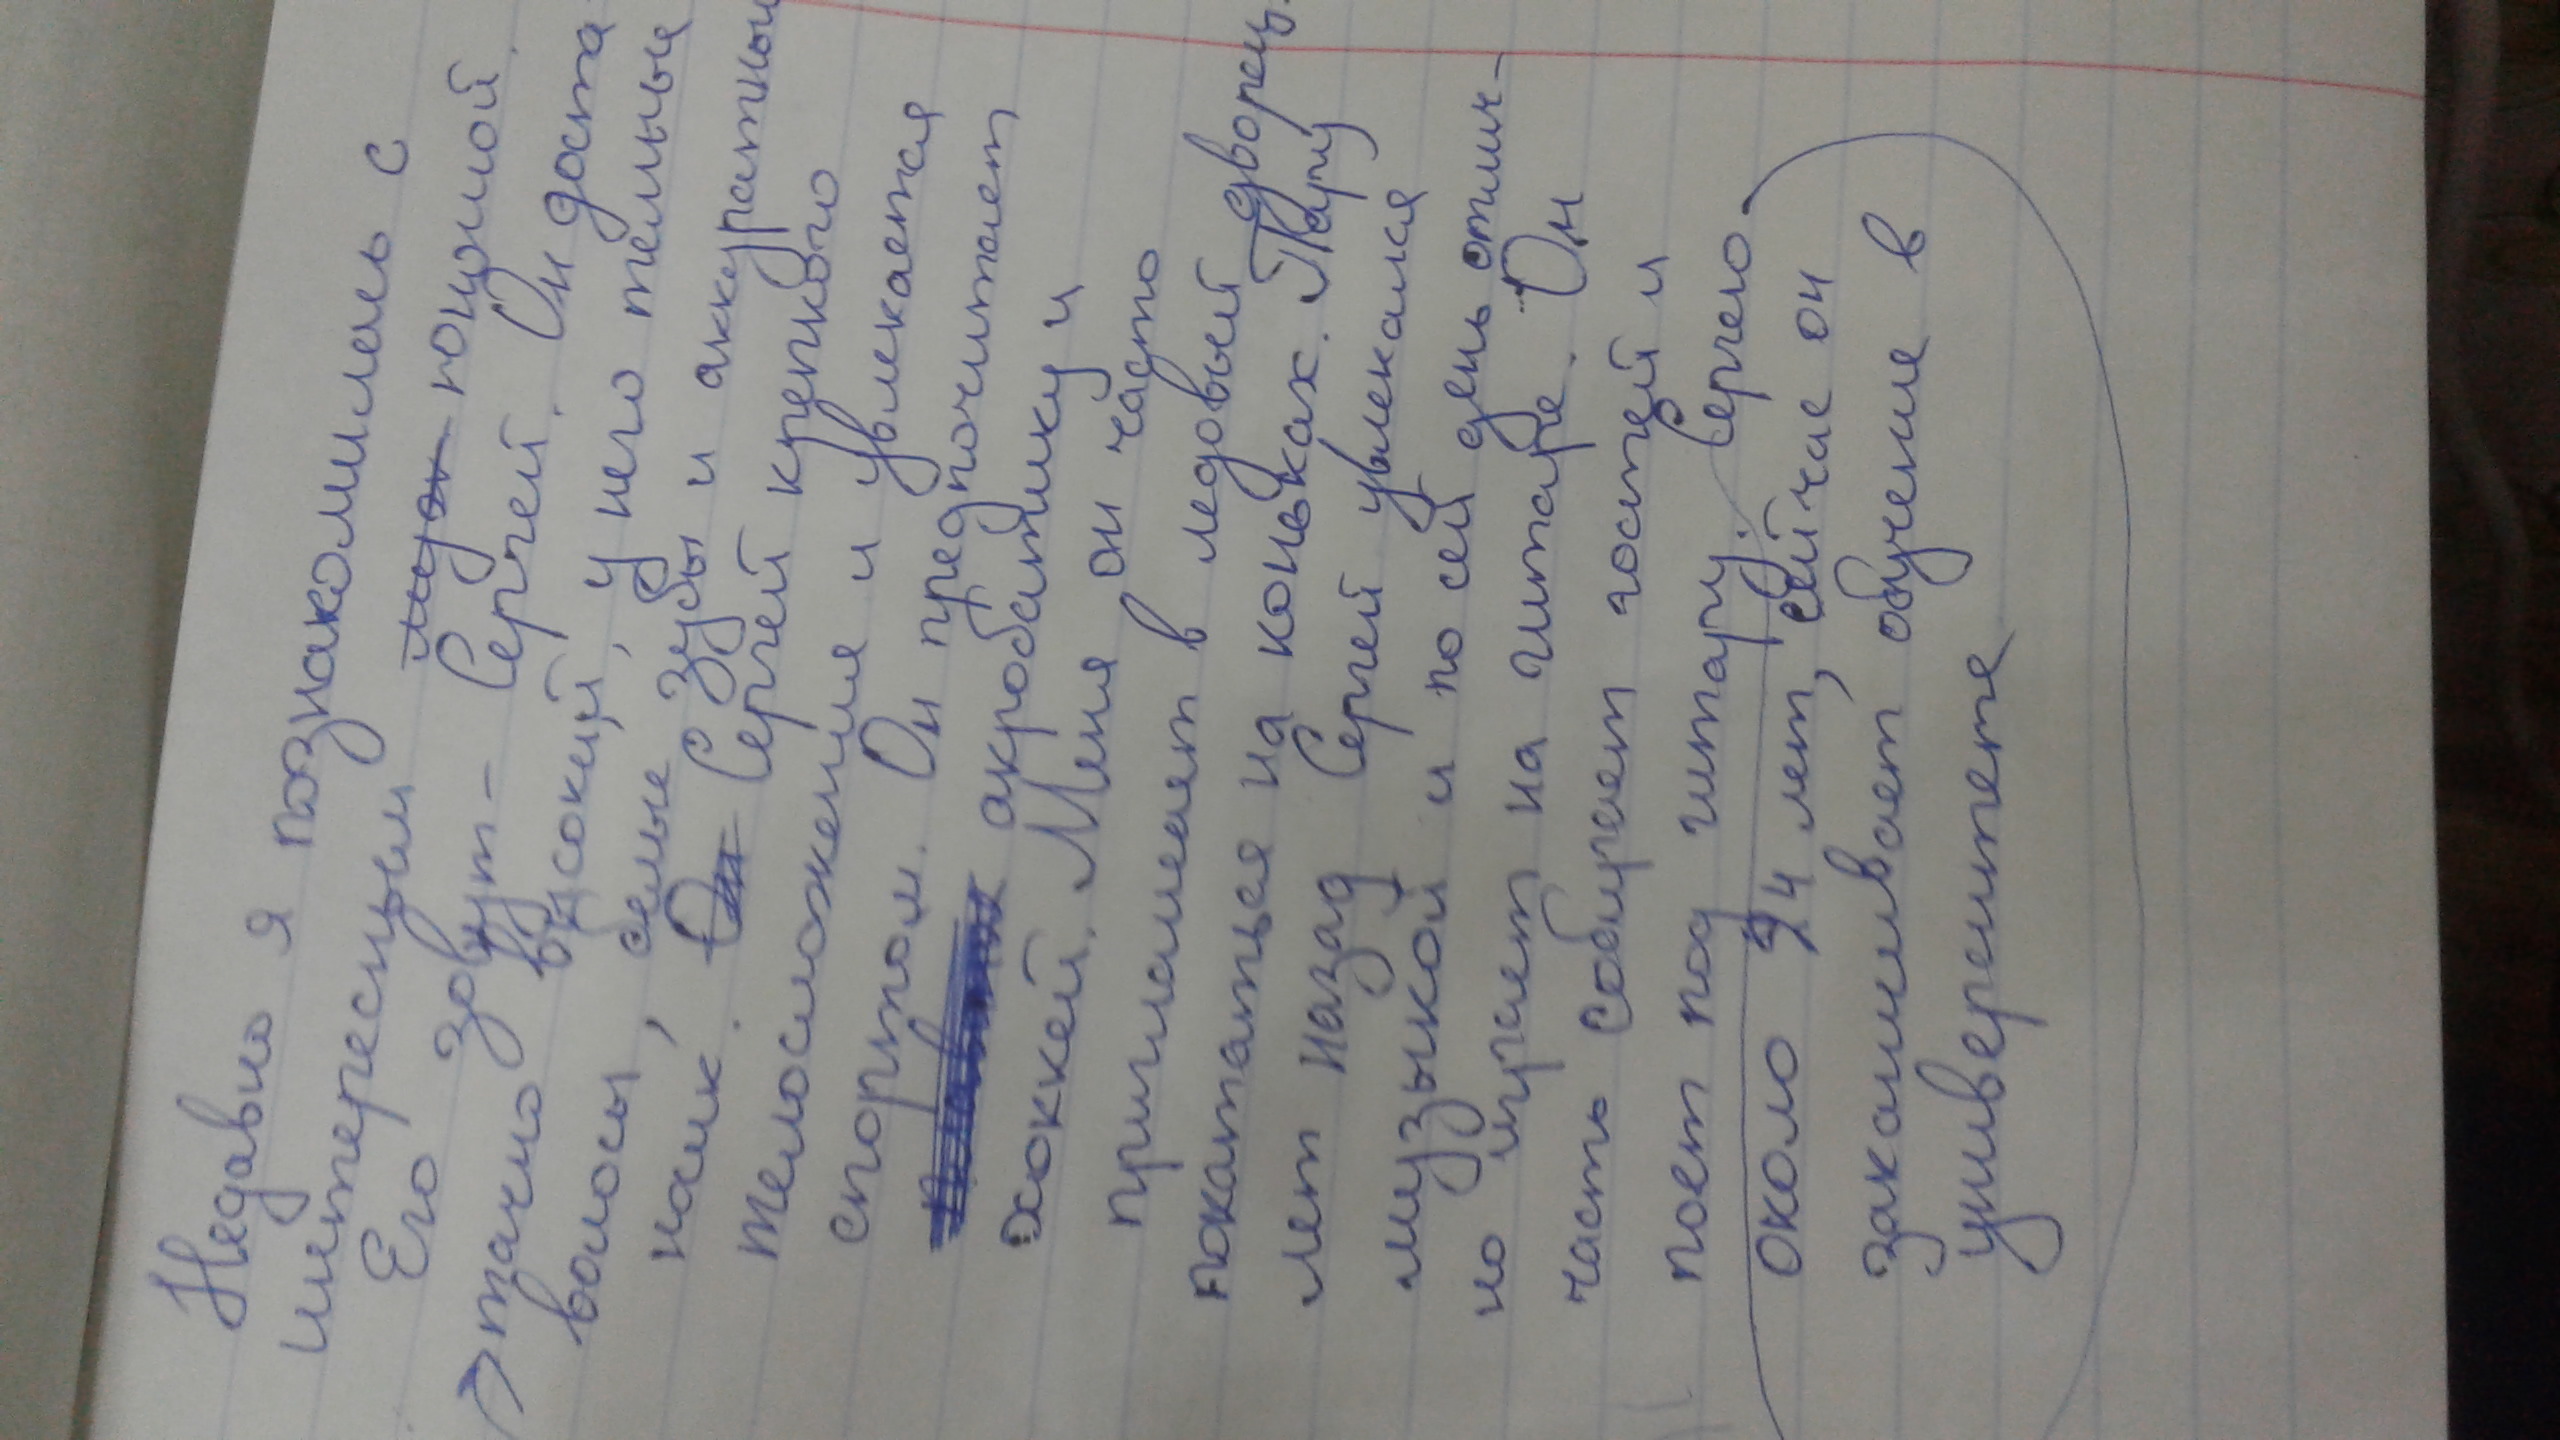 Недавно я познакомилась с
интересным юношой.
Его зовут - Сергей. Он доста
точно высокий, у него тёмные
волосы, белые зубы и аккуратный
носик. Сергей крепкого
телосложения и увлекается
спортом. Он предпочитает
акробатику и
хоккей. Меня он часто
приглашает в ледовый дворец.
покататься на коньках. Пару
лет назад Сергей увлекался
музыкой и по сей день отлич-
но играет на гитаре. Он
часть собирает гостей и
поет под гитару. Сергею
около 24 лет, сейчас он
заканчивает обучение в
университете